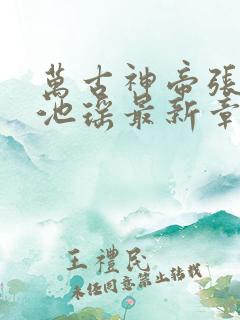 萬古神帝張
池瑤最新章
王禮民
未經同意禁止轉載